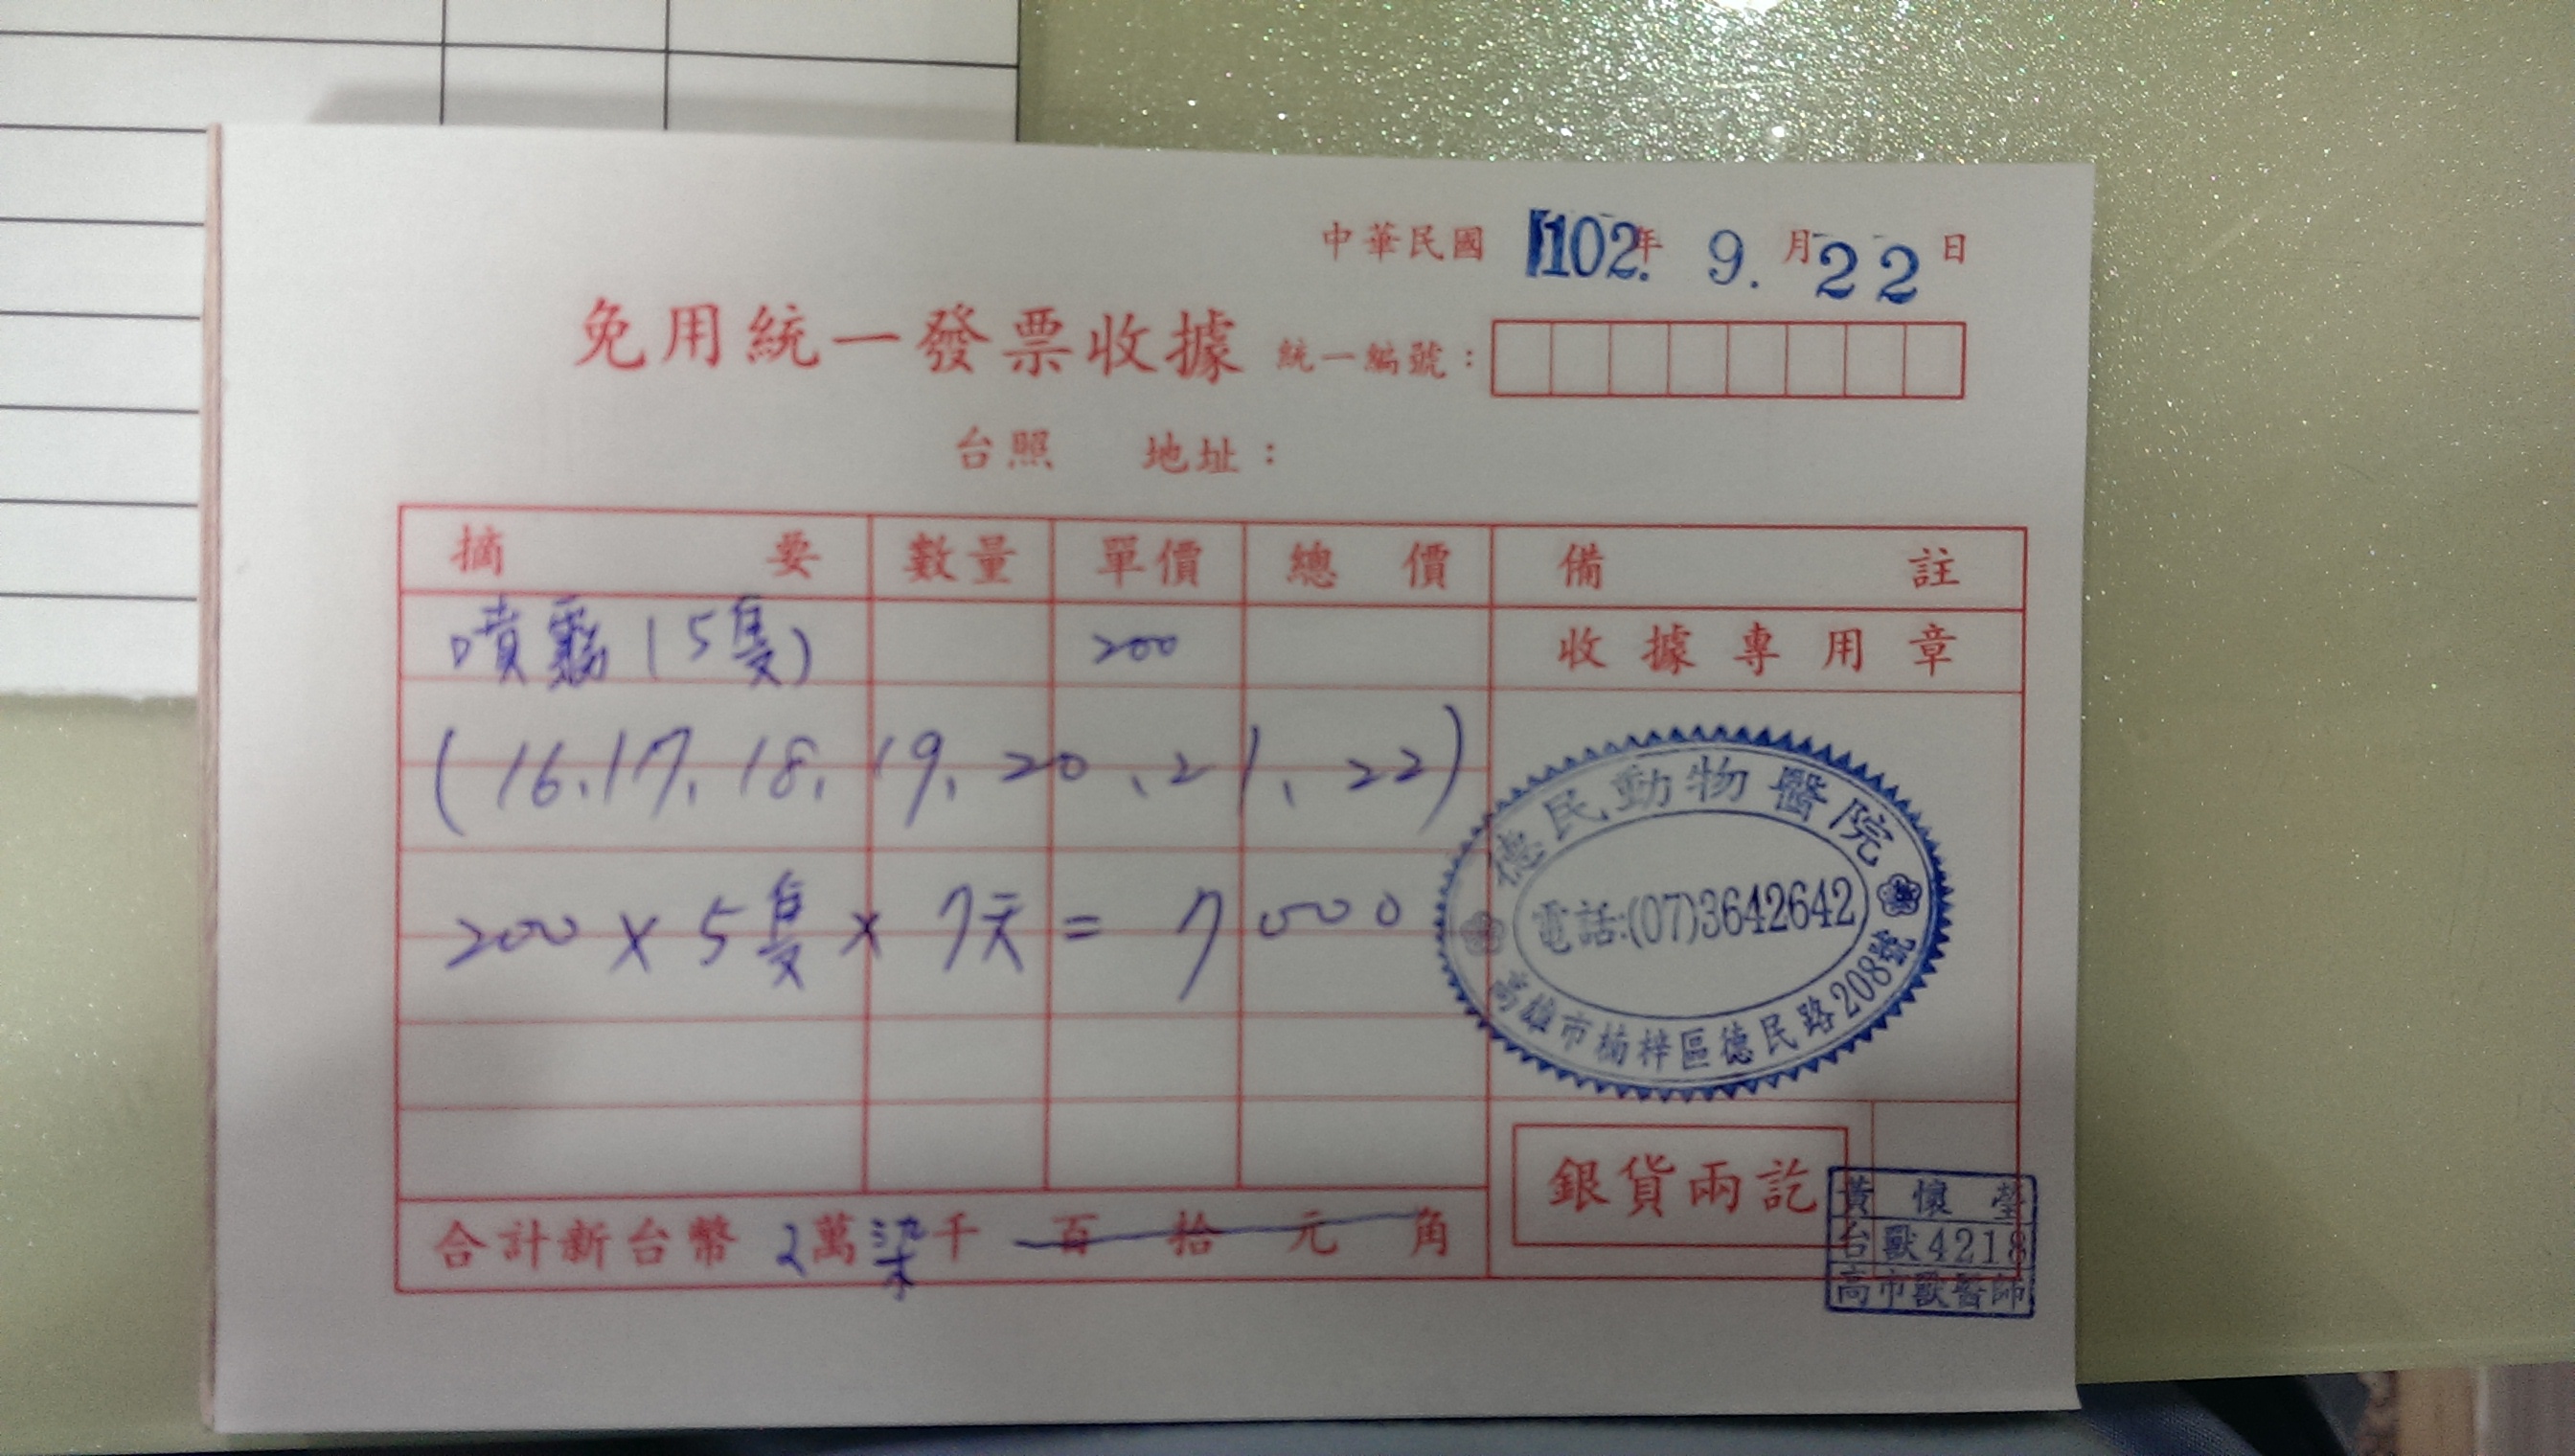 中華民國 102年 9. 月 22 日
免用統一發票收據 統一編號：
台照 地址：
摘要 數量 單價 總價 備註
噴霧(5隻) 200
收據專用章
(16、17、18、19、20、21、22)
200 × 5隻 × 7天 = 7000
德民動物醫院
電話:(07)3642642
高雄市楠梓區德民路208號
合計新台幣 萬柒千百拾元角
銀貨兩訖
黃懷瑩
台獸4218
高市獸醫師